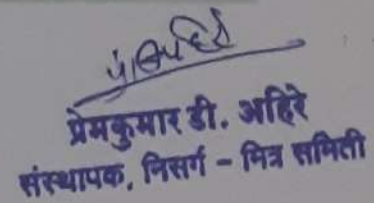 प्रेमकुमार डी. अहिरे
संस्थापक, निसर्ग - मित्र समिती